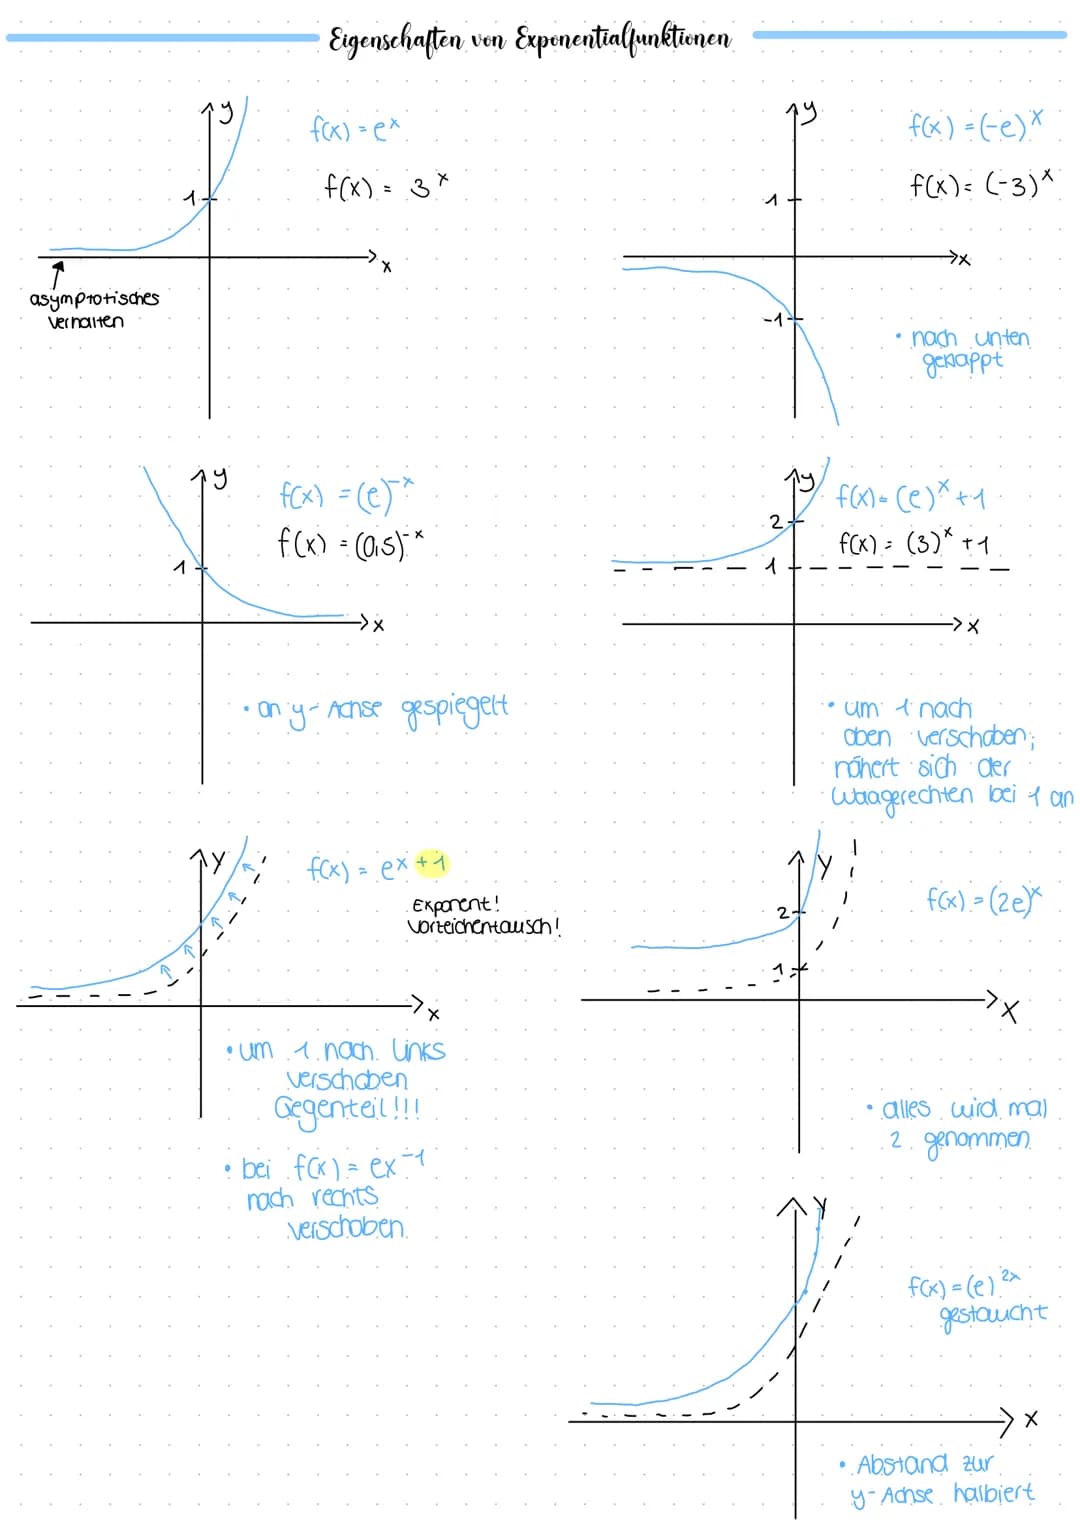 Eigenschaften von Exponentialfunktionen
y
f(x) = eˣ
f(x) = 3ˣ
1
x
asymptotisches
verhalten
y
f(x) = (-e)ˣ
f(x) = (-3)ˣ
1
x
-1
• nach unten
geklappt
y
f(x) = (e)⁻ˣ
f(x) = (0,5)⁻ˣ
1
x
• an y-Achse gespiegelt
y
f(x) = (e)ˣ + 1
2
f(x) = (3)ˣ + 1
1
x
• um 1 nach
oben verschoben;
nähert sich der
Waagerechten bei 1 an
y
f(x) = eˣ⁺¹
Exponent!
Vorzeichentausch!
x
• um 1 nach links
verschoben
Gegenteil!!!
• bei f(x) = ex⁻¹
nach rechts
verschoben
y
f(x) = (2e)ˣ
2
1
x
• alles wird mal
2 genommen
y
f(x) = (e)²ˣ
gestaucht
x
• Abstand zur
y-Achse halbiert